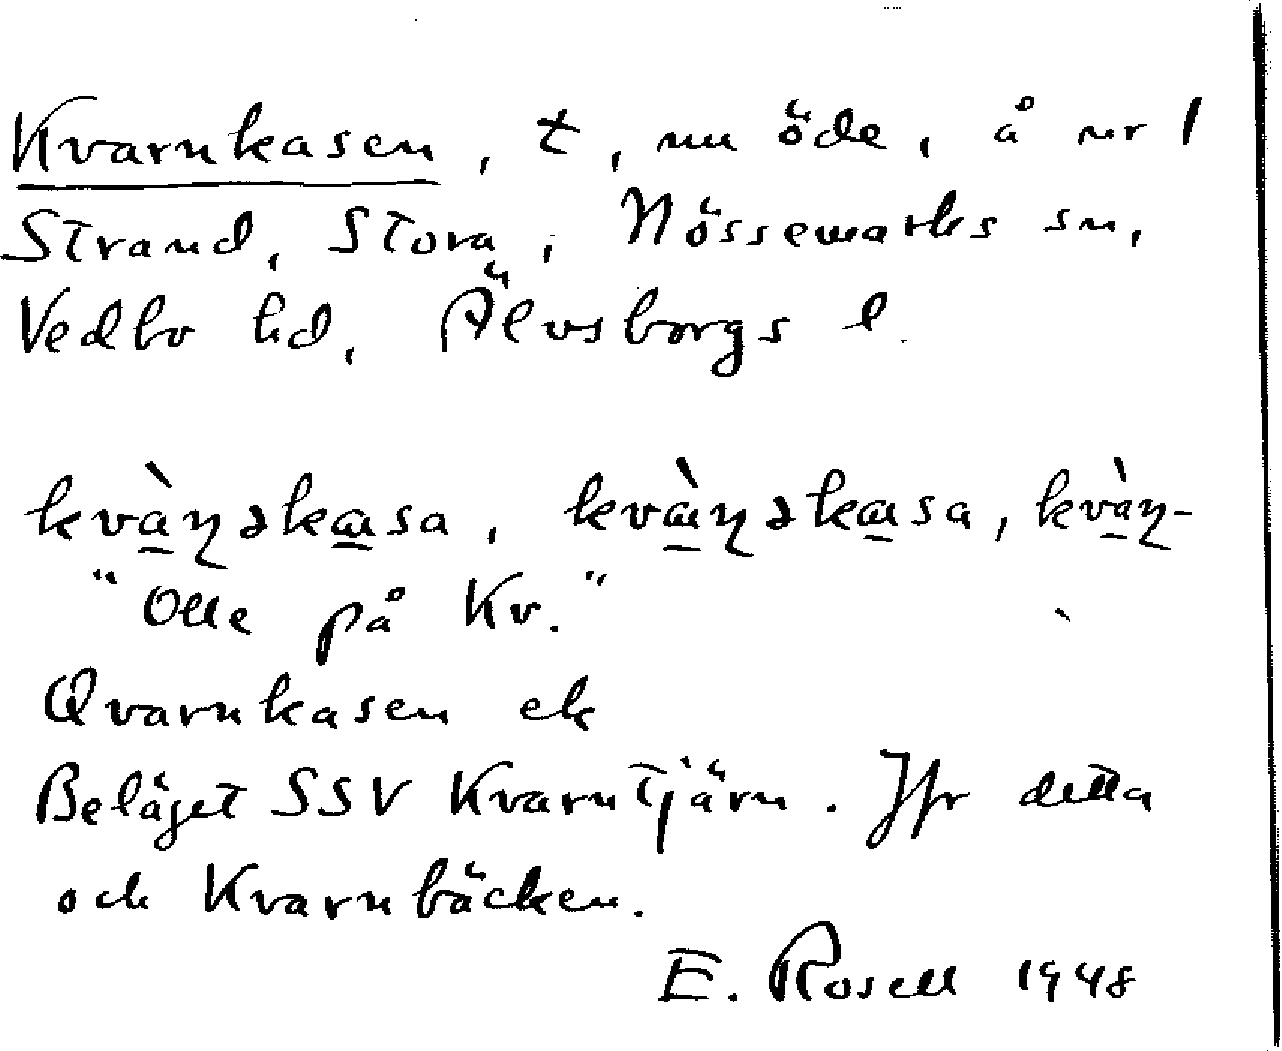 Kvarnkasen, t, nu öde, å nr 1
Strand, Stora, Nössemarks sn,
Vedbo hd, Älvsborgs l.
kvàɳəkɑsa, kvɑ̀ɳəkɑsa, kvàɳ-
"Olle på Kv."
Qvarnkasen ek
Beläget SSV Kvarntjärn. Jfr detta
och Kvarnbäcken.
E. Rosell 1948